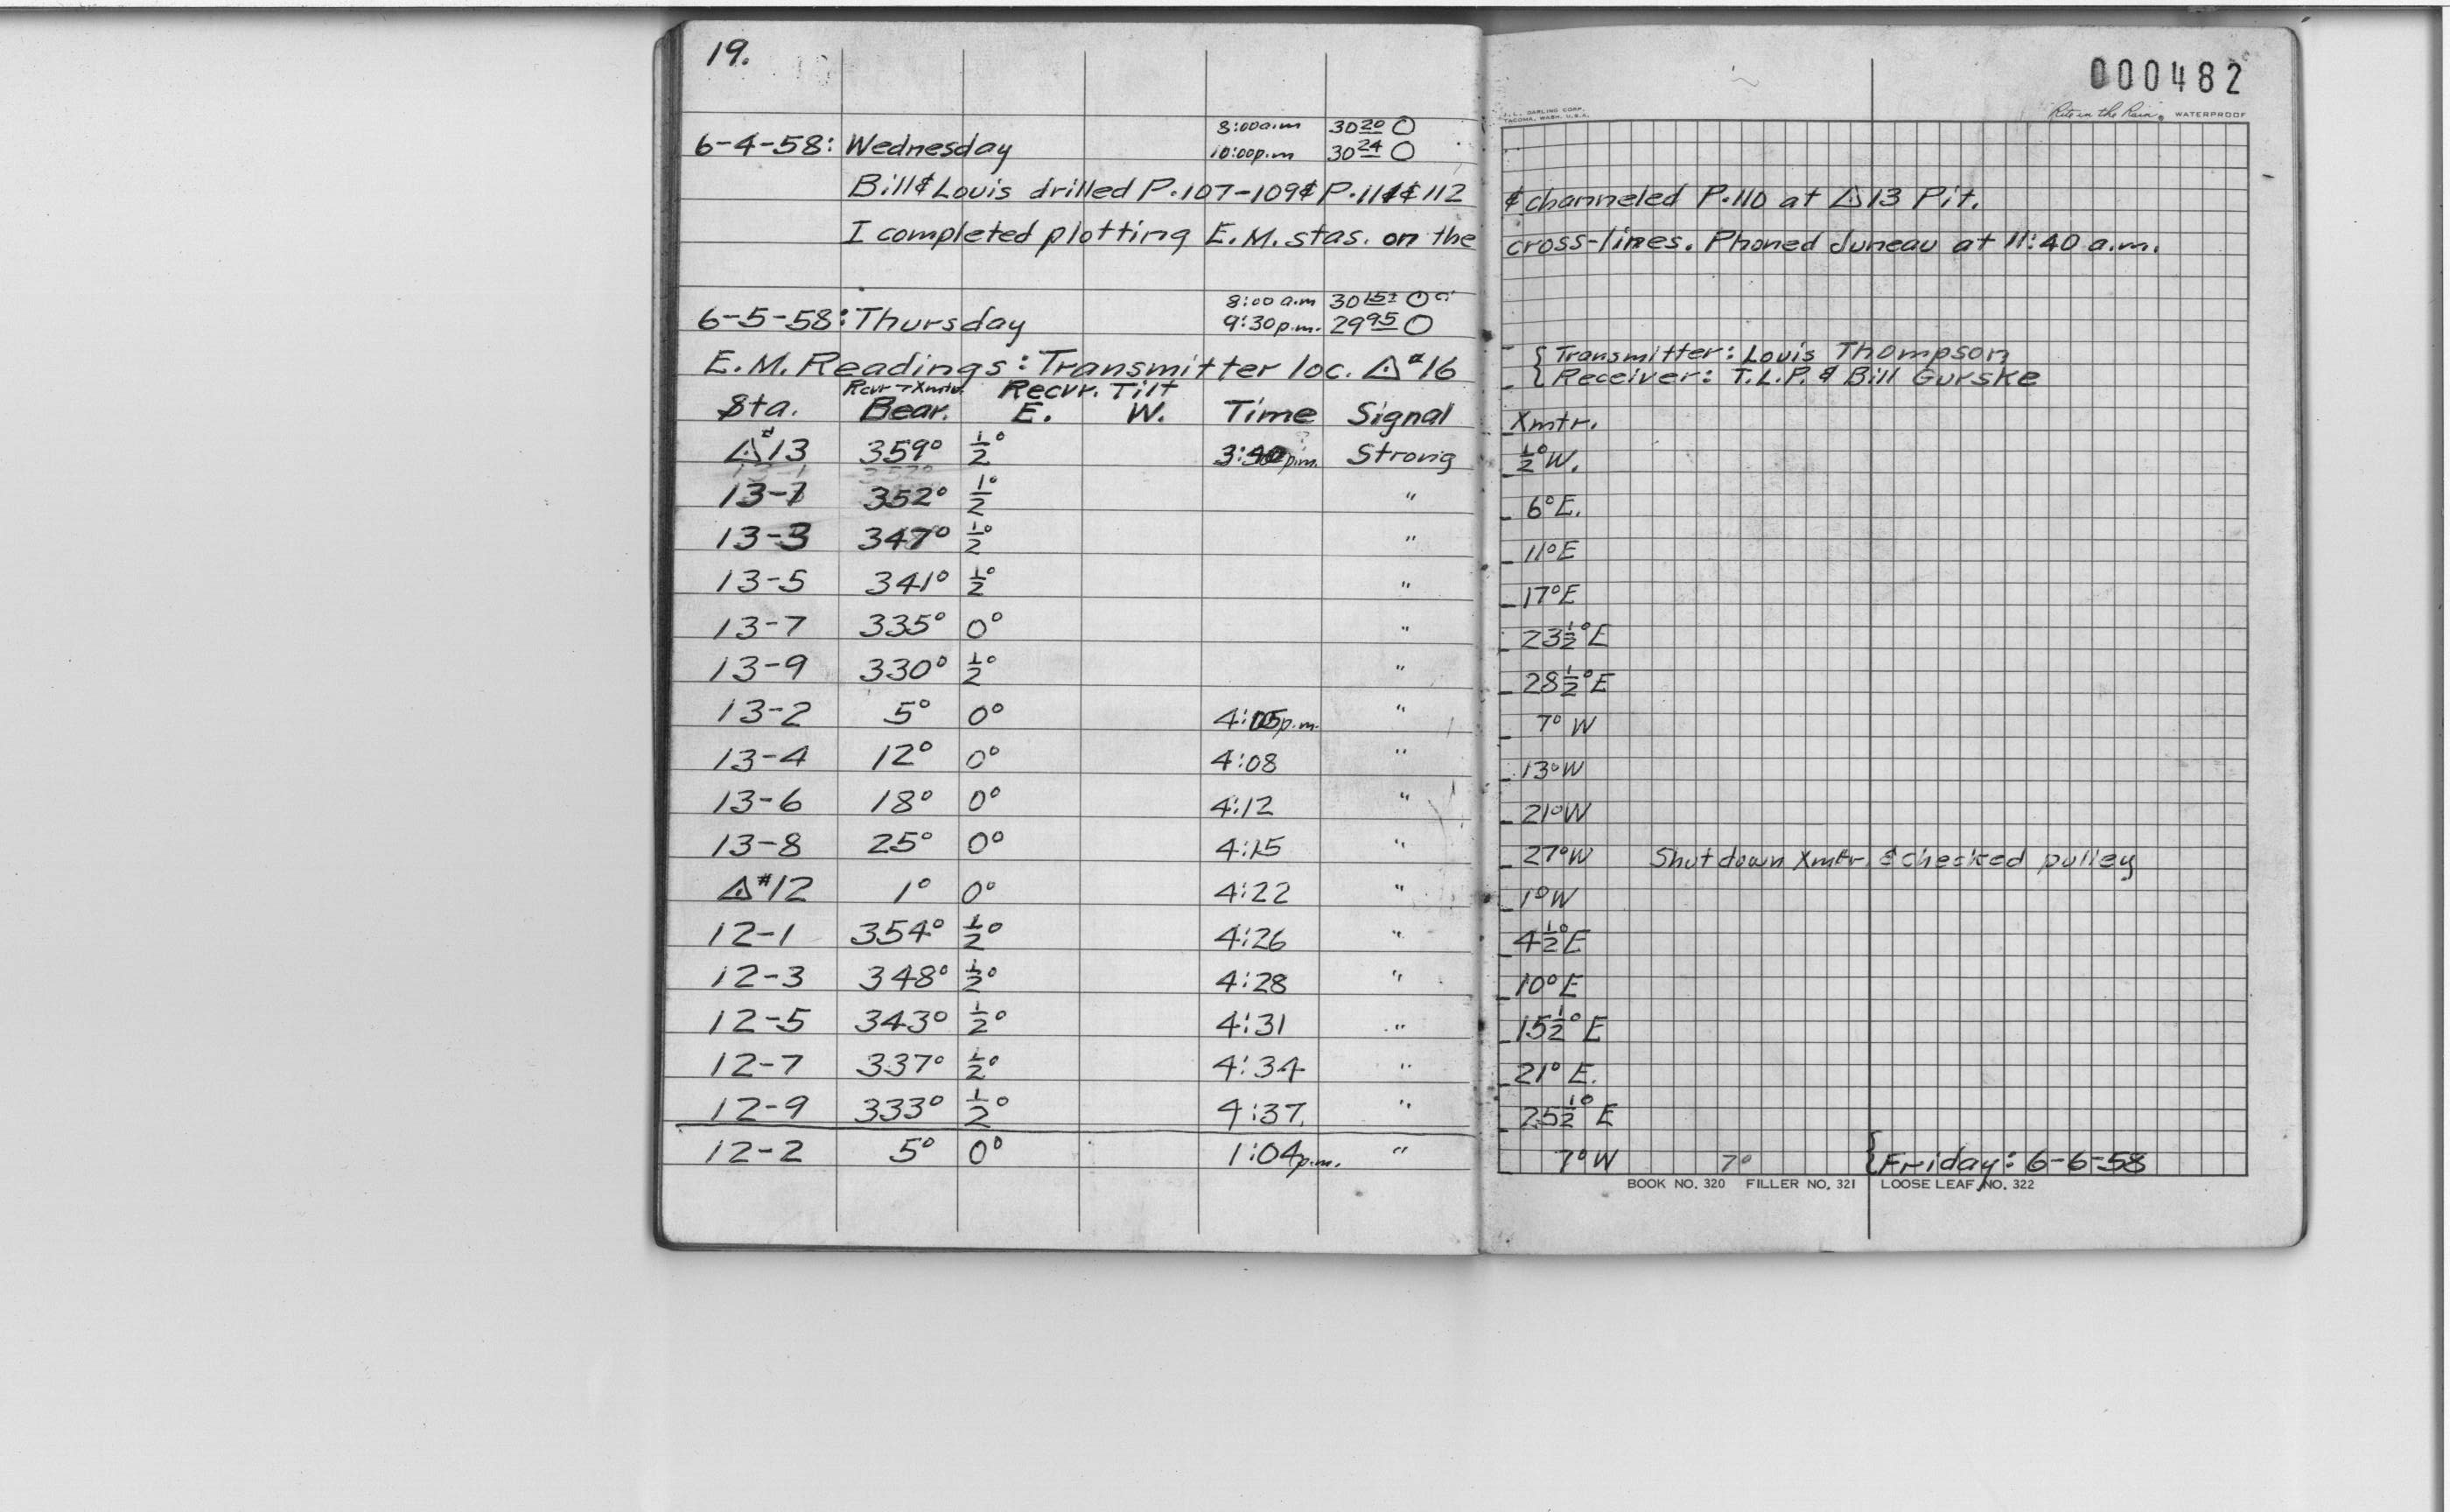 19.
000482
J. L. DARLING CORP.
TACOMA, WASH. U.S.A.
Rite in the Rain WATERPROOF
8:00a.m 30 20 O
6-4-58: Wednesday 10:00p.m 30 24 O
Bill & Louis drilled P.107-109 & P.111 & 112 & channeled P.110 at △13 Pit.
I completed plotting E.M. stas. on the cross-lines. Phoned Juneau at 11:40 a.m.
8:00 a.m 30 15± O
6-5-58: Thursday 9:30p.m. 29 95 O
E.M. Readings: Transmitter loc. △#16 { Transmitter: Louis Thompson
{ Receiver: T.L.P. & Bill Gurske
Rcvr→Xmtr. Recvr. Tilt
Sta. Bear. E. W. Time Signal Xmtr.
△#13 359° ½° 3:40p.m. Strong ½°W.
13-1 352° ½° " 6°E.
13-3 347° ½° " 11°E
13-5 341° ½° " 17°E
13-7 335° 0° " 23½°E
13-9 330° ½° " 28½°E
13-2 5° 0° 4:05p.m. " 7°W
13-4 12° 0° 4:08 " 13°W
13-6 18° 0° 4:12 " 21°W
13-8 25° 0° 4:15 " 27°W Shut down Xmtr. & checked pulley
△#12 1° 0° 4:22 " 1°W
12-1 354° ½° 4:26 " 4½°E
12-3 348° ½° 4:28 " 10°E
12-5 343° ½° 4:31 " 15½°E
12-7 337° ½° 4:34 " 21°E.
12-9 333° ½° 4:37 " 25½°E
12-2 5° 0° 1:04p.m. " 7°W 7° {Friday: 6-6-58
BOOK NO. 320 FILLER NO. 321 LOOSE LEAF NO. 322